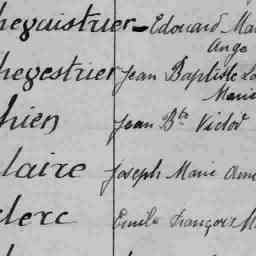 heguistrier - Edouard Ma
Ange
hegestrier Jean Baptiste Lo
Marie
hien Jean Bte Victor
laire Joseph Marie Ame
clerc Emile François M